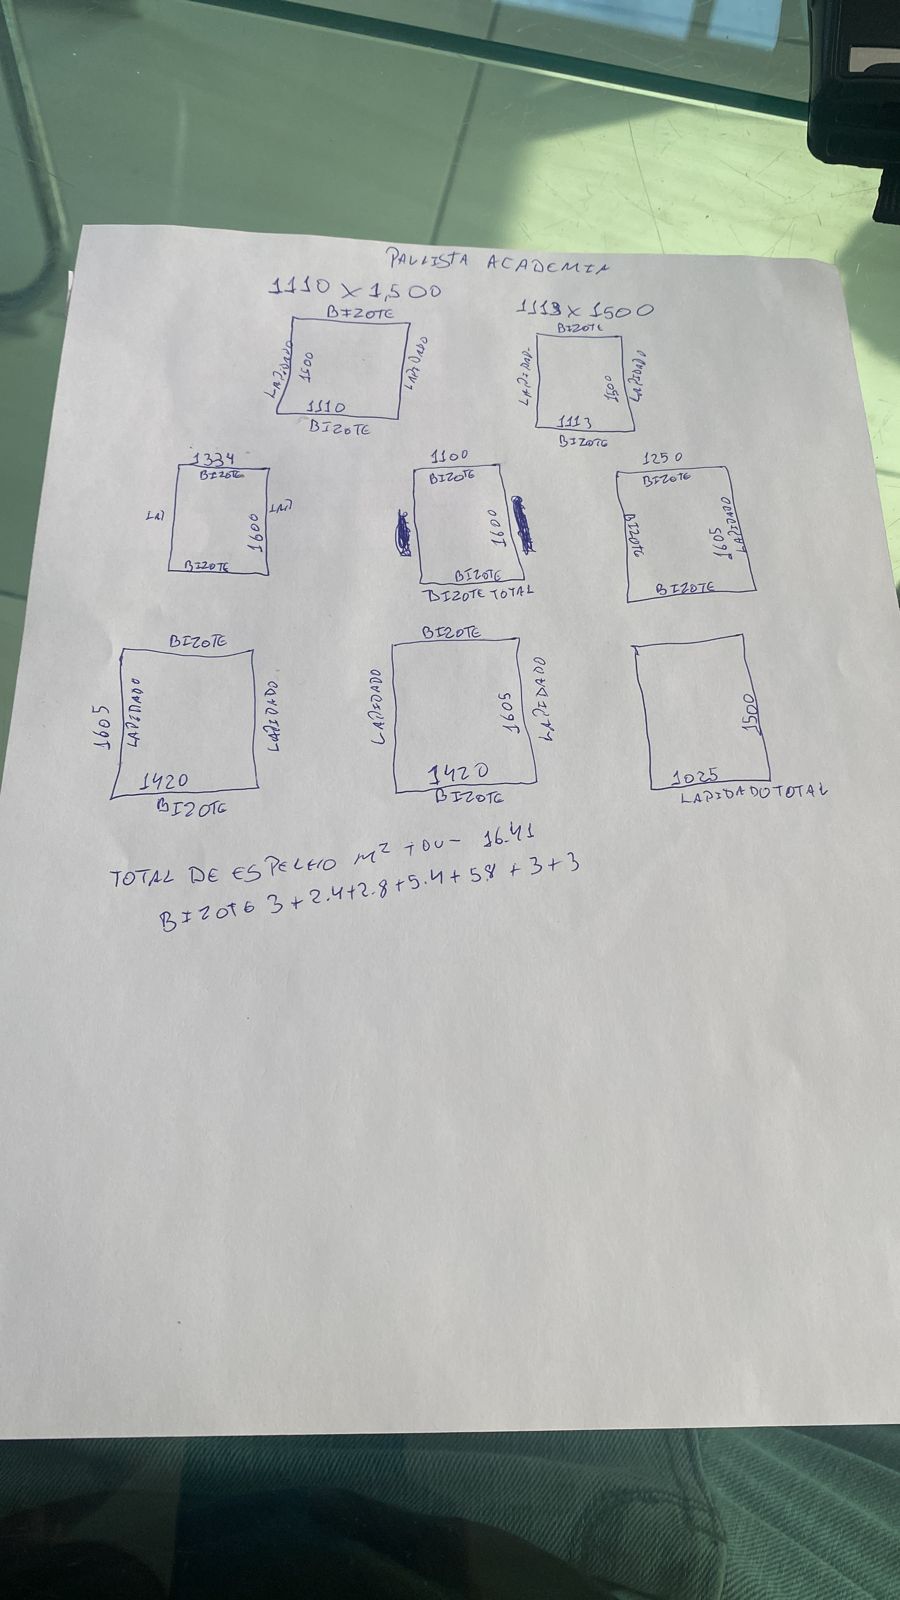 PAULISTA ACADEMIA
1110 X 1,500
BIZOTE
LAPIDADO
1500
LAPIDADO
1110
BIZOTE
1113 X 1500
BIZOTE
LAPIDAD.
1500
LAPIDADO
1113
BIZOTE
1334
BIZOTE
LAP
LAP
1600
BIZOTE
1100
BIZOTE
1600
BIZOTE
BIZOTE TOTAL
1250
BIZOTE
BIZOTE
1605
LAPIDADO
BIZOTE
BIZOTE
1605
LAPIDADO
LAPIDADO
1420
BIZOTE
BIZOTE
LAPIDADO
1605
LAPIDADO
1420
BIZOTE
1500
1025
LAPIDADO TOTAL
TOTAL DE ESPELHO M² + OU - 16.41
BIZOTE 3 + 2.4 + 2.8 + 5.4 + 5.8 + 3 + 3